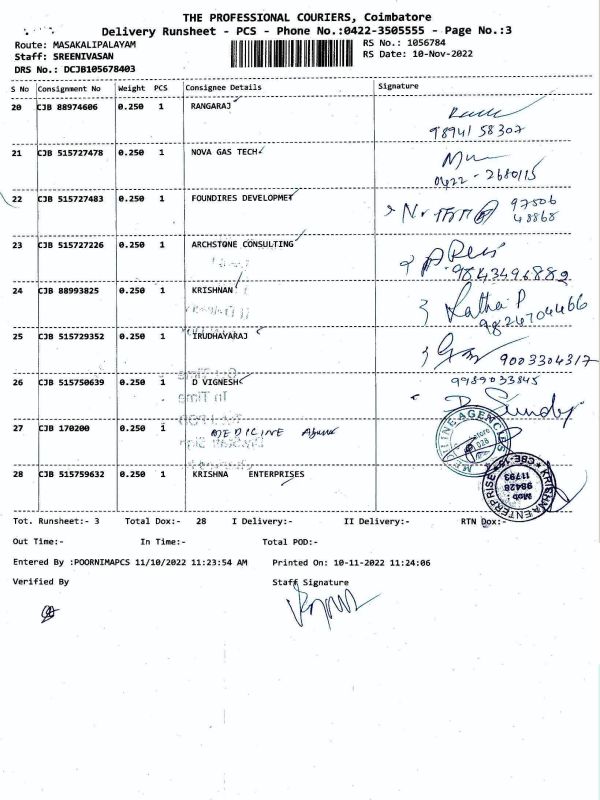 THE PROFESSIONAL COURIERS, Coimbatore
Delivery Runsheet - PCS - Phone No.:0422-3505555 - Page No.:3
Route: MASAKALIPALAYAM RS No.: 1056784
Staff: SREENIVASAN RS Date: 10-Nov-2022
DRS No.: DCJB105678403
S No Consignment No Weight PCS Consignee Details Signature
20 CJB 88974606 0.250 1 RANGARAJ
98941 58307
21 CJB 515727478 0.250 1 NOVA GAS TECH
0422 - 2680115
22 CJB 515727483 0.250 1 FOUNDIRES DEVELOPMET 97506
48868
23 CJB 515727226 0.250 1 ARCHSTONE CONSULTING
9843496882
24 CJB 88993825 0.250 1 KRISHNAN Latha P
9824704466
25 CJB 515729352 0.250 1 IRUDHAYARAJ
9003304317
26 CJB 515750639 0.250 1 D VIGNESH 9989033845
27 CJB 170200 0.250 1 MEDICINE
28 CJB 515759632 0.250 1 KRISHNA ENTERPRISES
KRISHNA ENTERPRISE CBE-15
Mob:
98428
11793
Tot. Runsheet:- 3 Total Dox:- 28 I Delivery:- II Delivery:- RTN Dox:-
Out Time:- In Time:- Total POD:-
Entered By :POORNIMAPCS 11/10/2022 11:23:54 AM Printed On: 10-11-2022 11:24:06
Verified By Staff Signature